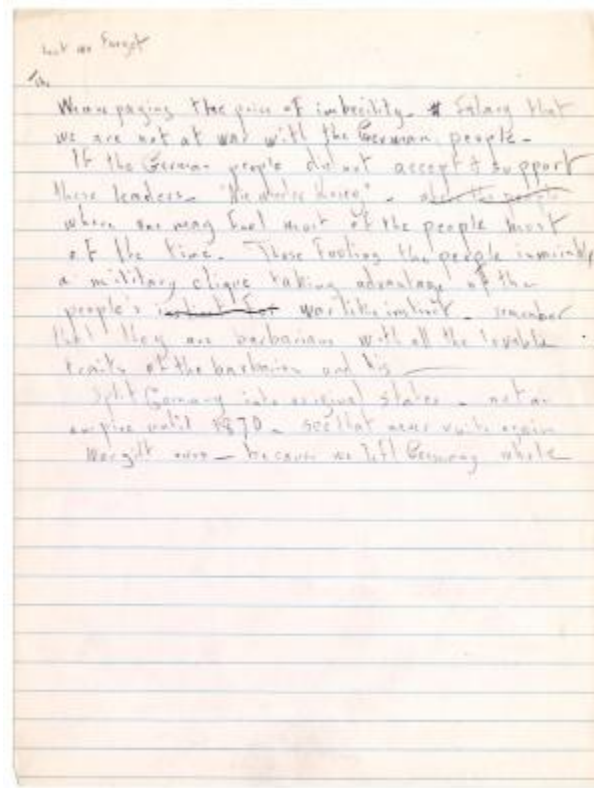 Lest we Forget
The
We are paying the price of imbecility - # Fallacy that
we are not at war with the German people -
If the German people did not accept & support
these leaders -
where one may fool most of the people most
of the time - Those fooling the people invariably
a military clique taking advantage of the
people's instinct for war like instinct - remember
that they are barbarians with all the lovable
traits of the barbarian and his
Split Germany into original states - not an
empire until 1870 - see that never unite again
because we left Germany whole